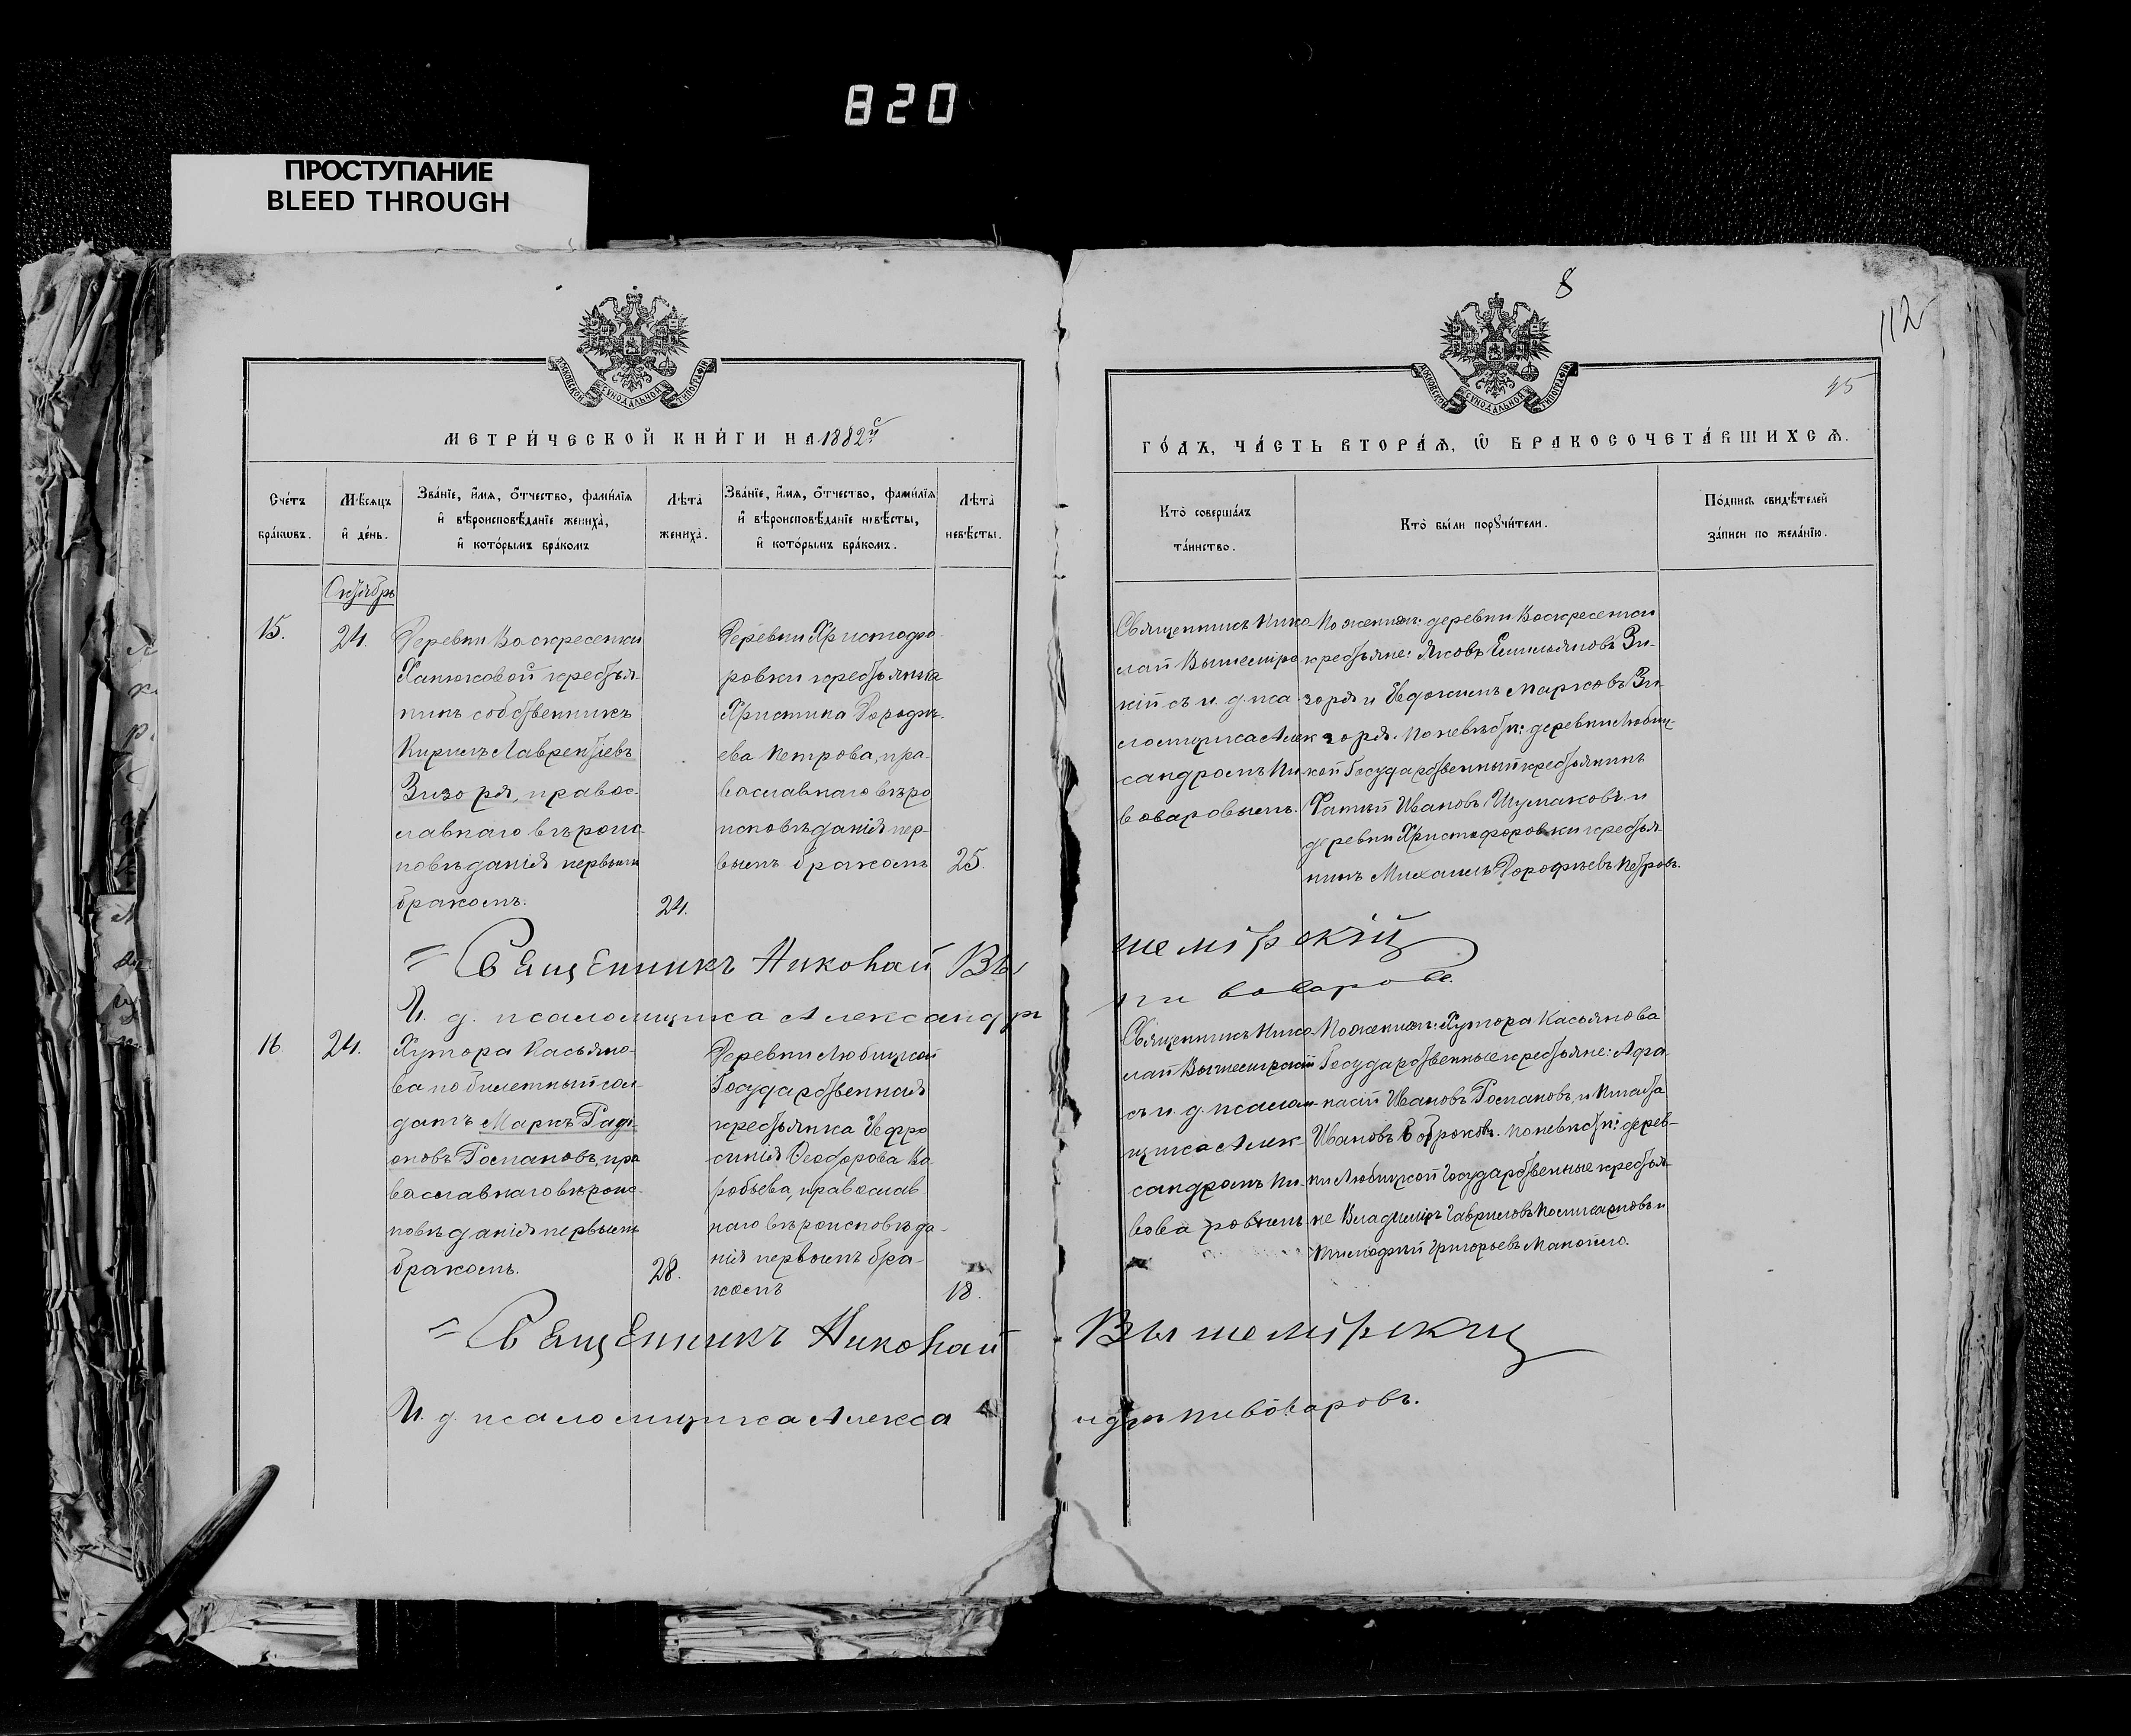 820
ПРОСТУПАНИЕ
BLEED THROUGH
8
112
45
МОСКОВСКОЙ СѴНОДАЛЬНОЙ ТИПОГРАФІИ
МОСКОВСКОЙ СѴНОДАЛЬНОЙ ТИПОГРАФІИ
МЕТРИ́ЧЕСКОЙ КНИ́ГИ НА 1882й
ГО́ДЪ, ЧА́СТЬ ВТОРА́Ѧ, Ѽ БРАКОСОЧЕТА́ВШИХСѦ.
Сче́тъ
бра́кωвъ.
Мѣ́сѧцъ
и҆ де́нь.
Зва́нїе, и҆́мѧ, о҆́тчество, фами́лїѧ
и҆ вѣроисповѣ́данїе жениха̀,
и҆ кото́рымъ бра́комъ
Лѣта̀
жениха̀.
Зва́нїе, и҆́мѧ, о҆́тчество, фами́лїѧ
и҆ вѣроисповѣ́данїе невѣ́сты,
и҆ кото́рымъ бра́комъ.
Лѣта̀
невѣ́сты.
Кто̀ соверша́лъ
та́инство.
Кто̀ бы́ли порꙋчи́тели.
По́дпись свидѣ́телей
за́писи по жела́нїю.
Октябрь
15.
24.
Деревни Воскресенки
Ханюковой крестья-
нинъ собственникъ
Кирилъ Лаврентіевъ
Зизоря, правос-
лавнаго вѣроис-
повѣданія первымъ
бракомъ.
24.
Деревни Христофо-
ровки крестьянка
Христина Дорофѣ-
ева Петрова, пра-
вославнаго вѣро
исповѣданія пер-
вымъ бракомъ
25.
Священникъ Нико
лай Вышемірс
кій съ и. д. пса
ломщика Алек
сандромъ Пи
воваровымъ.
По женихѣ: деревни Воскресенки
крестьяне: Яковъ Емельяновъ Зи-
зоря и Евдокимъ Марковъ Зи-
зоря. По невѣстѣ: деревни Любиц-
кой Государственный крестьянинъ
Фатѣй Ивановъ Шумаковъ и
деревни Христофоровки крестья-
нинъ Михаилъ Дорофѣевъ Петровъ.
Священникъ Николай Вышемірскій
И. д. псаломщика Александръ Пивоваровъ.
16.
24.
Хутора Касьяно-
ва по билетный сол-
датъ Маркъ Раді-
оновъ Романовъ, пра
вославнаго вѣроис-
повѣданія первымъ
бракомъ.
28.
Деревни Любицкой
Государственная
крестьянка Ефро
синія Феодорова Во
робьева, православ
наго вѣроисповѣда-
нія первымъ бра-
комъ
18.
Священникъ Нико
лай Вышемірскій
съ и. д. псалом-
щика Алек-
сандромъ Пи-
воваровымъ
По женихѣ: Хутора Касьянова
Государственные крестьяне: Афа-
насій Ивановъ Романовъ, и
Ивановъ По невѣстѣ: дерев-
ни Любицкой Государственные крестья-
не Владиміръ Гавриловъ и
Тимофей Григорьевъ
Священникъ Николай Вышемірскій
И. д. псаломщика Александръ Пивоваровъ.